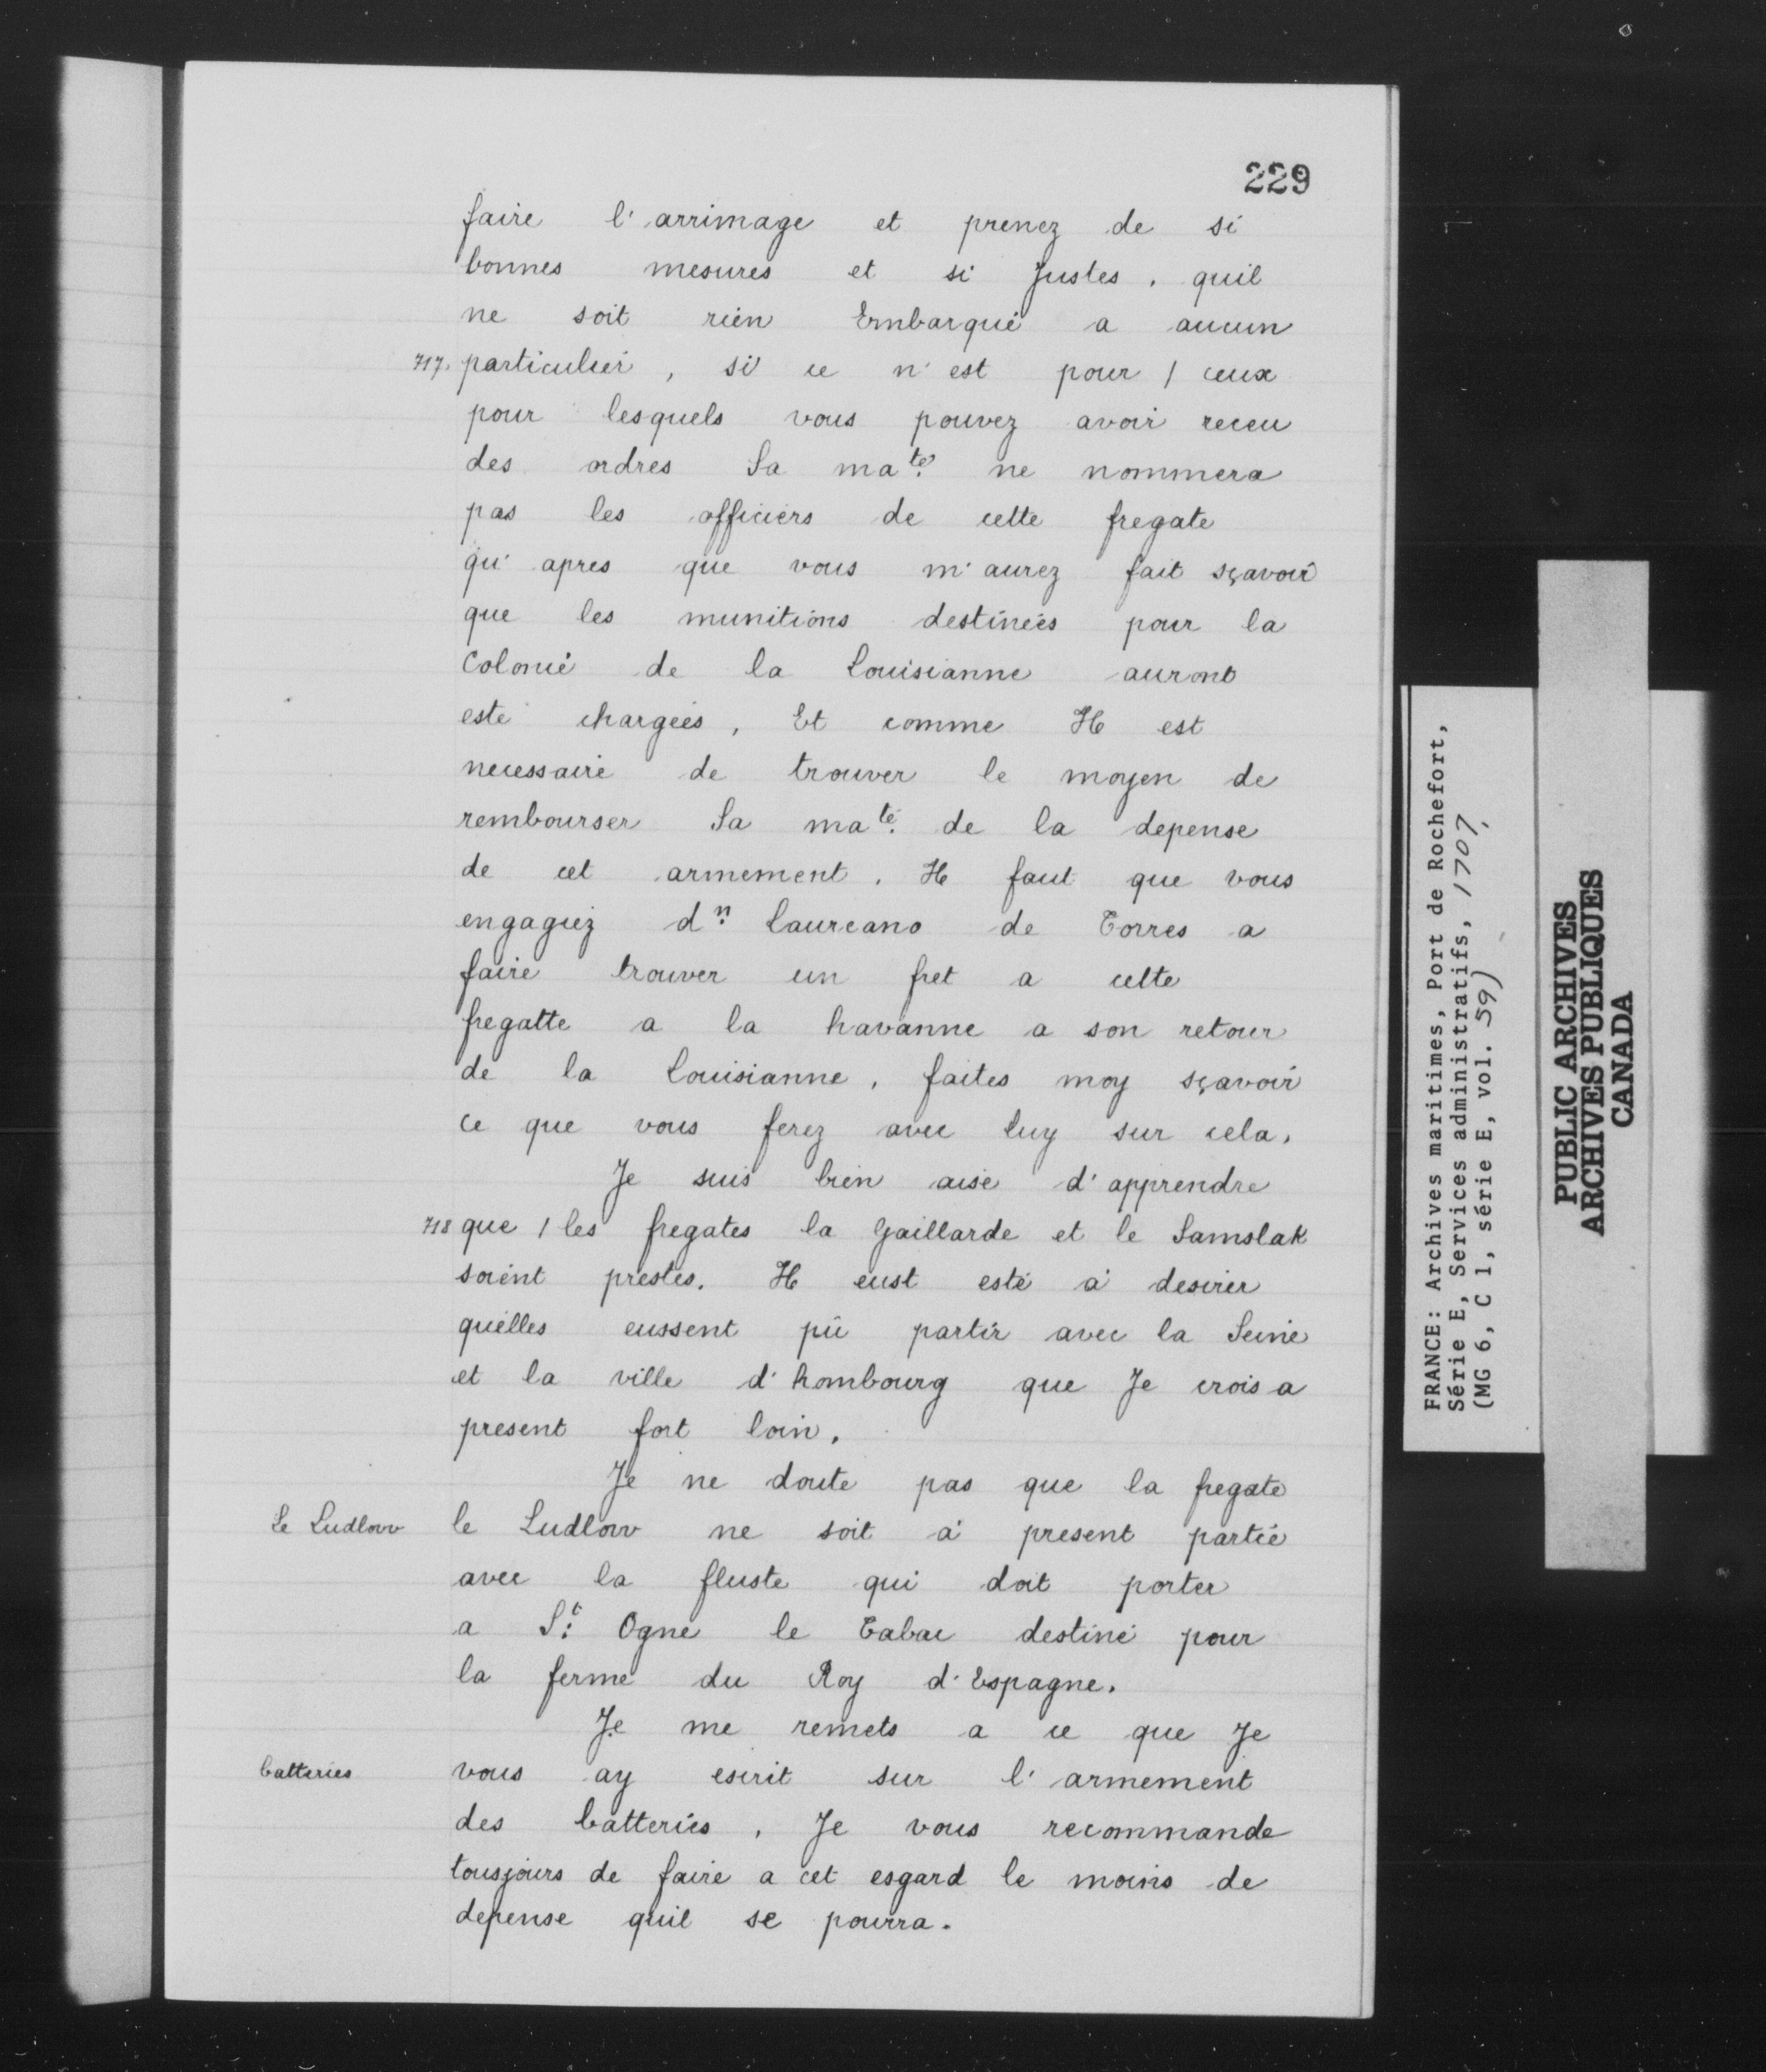 229
faire l'arrimage et prenez de si
bonnes mesures et si Justes, quil
ne soit rien Embarqué a aucun
717. particulier, si ce n'est pour / ceux
pour lesquels vous pouvez avoir receu
des ordres Sa ma.té ne nommera
pas les officiers de cette fregate
qu'apres que vous m'aurez fait sçavoir
que les munitions destinées pour la
Colonie de la Louisianne auront
esté chargées, Et comme Il est
necessaire de trouver le moyen de
rembourser Sa ma.té de la depense
de cet armement. Il faut que vous
engagiez d.n Laureano de Torres a
faire trouver un fret a cette
fregatte a la havanne a son retour
de la Louisianne, faites moy sçavoir
ce que vous ferez avec luy sur cela.
Je suis bien aise d'apprendre
718 que / les fregates la Gaillarde et le Samslak
soient prestes. Il eust esté à desirer
quelles eussent pû partir avec la Seine
et la ville d'hombourg que Je crois a
present fort loin.
Je ne doute pas que la fregate
Le Ludlow le Ludlow ne soit à present partie
avec la fluste qui doit porter
a S.t Ogne le Tabac destiné pour
la ferme du Roy d'Espagne.
Je me remets a ce que Je
batteries vous ay escrit sur l'armement
des batteries, Je vous recommande
tousjours de faire a cet esgard le moins de
depense quil se pourra.
FRANCE: Archives maritimes, Port de Rochefort,
Série E, Services administratifs, 1707,
(MG 6, C 1, série E, vol. 59)
PUBLIC ARCHIVES
ARCHIVES PUBLIQUES
CANADA